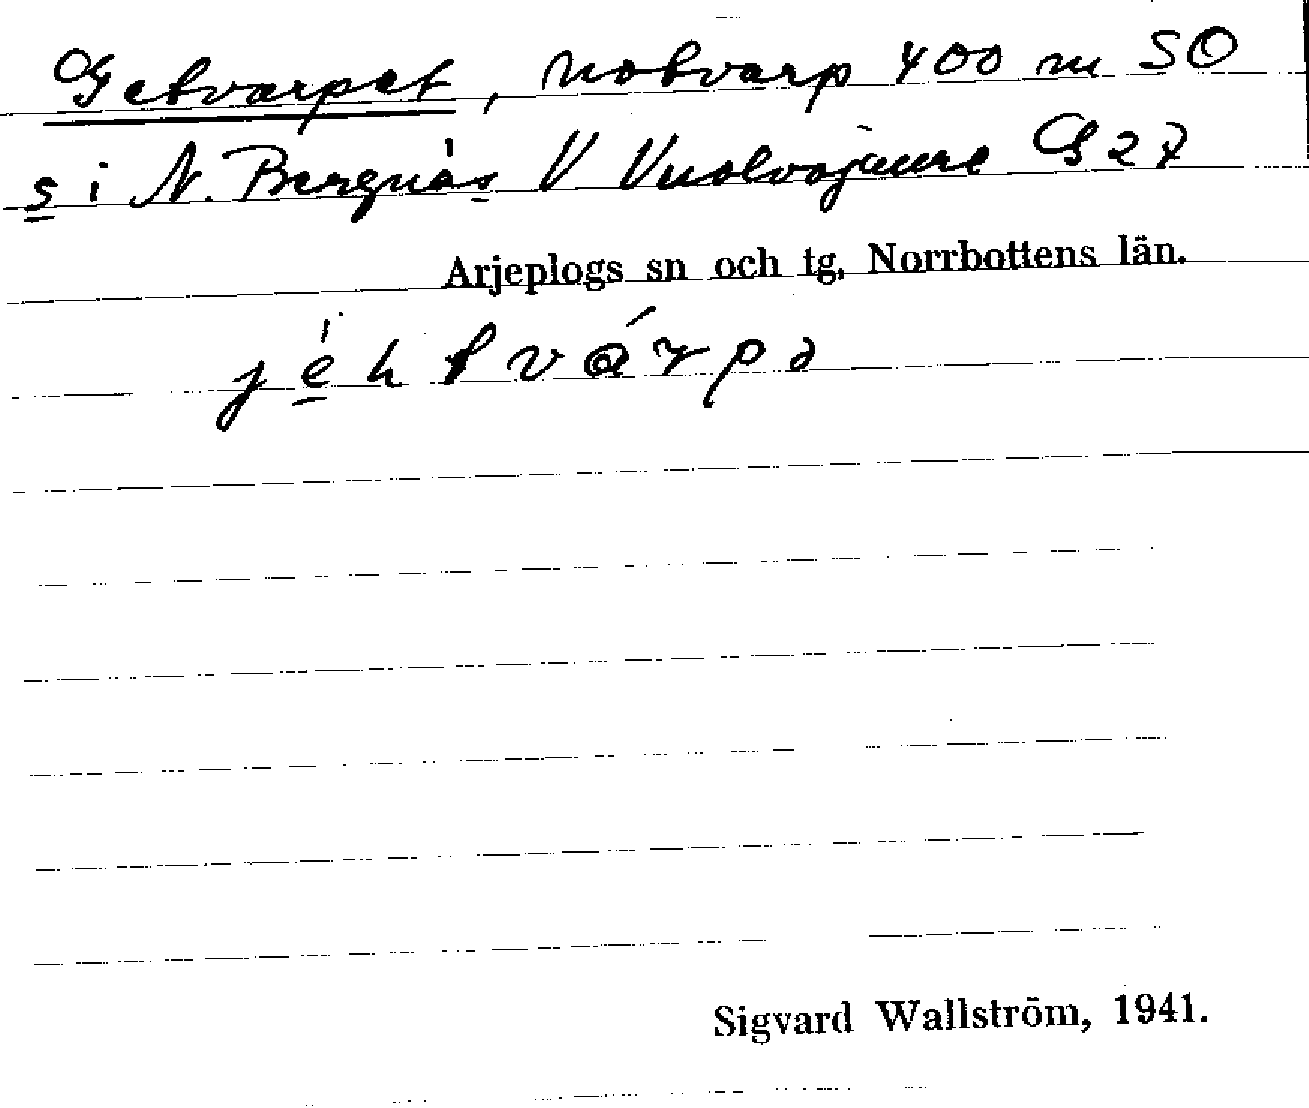 Getvarpet, notvarp 400 m SO
s i N. Bergnäs V Vuolvojaure G 27
Arjeplogs sn och tg, Norrbottens län.
jèhtvárpə
Sigvard Wallström, 1941.